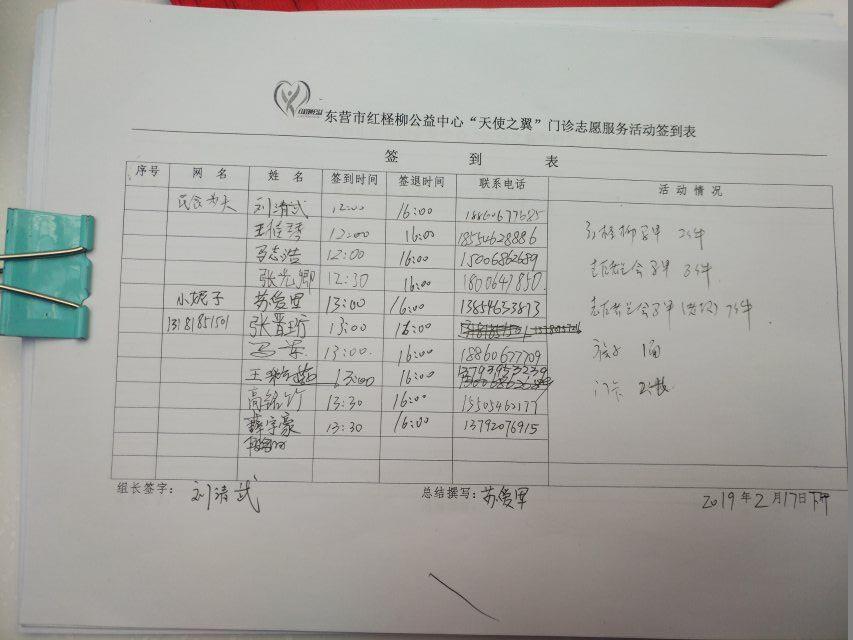 东营市红柽柳公益中心“天使之翼”门诊志愿服务活动签到表
签 到 表
序号 网 名 姓 名 签到时间 签退时间 联系电话 活动情况
民食为天 刘清武 12:00 16:00 18860677685
12:00 16:00 18554628886
马志浩 12:00 16:00 15006862689
张光卿 12:30 16:00
小妮子 苏俊里 13:00 16:00 13854653873
13:00 16:00
马 13:00. 16:00 18860677709
王 13:00 16:00 13793953239
高铭竹 13:30 16:00 15505462177
薛宇豪 13:30 16:00 13792076915
红柽柳马甲 2件
马甲 8件
马甲 7件
1面
门卡 2张
组长签字： 刘清武 总结撰写： 2019年2月17日下午